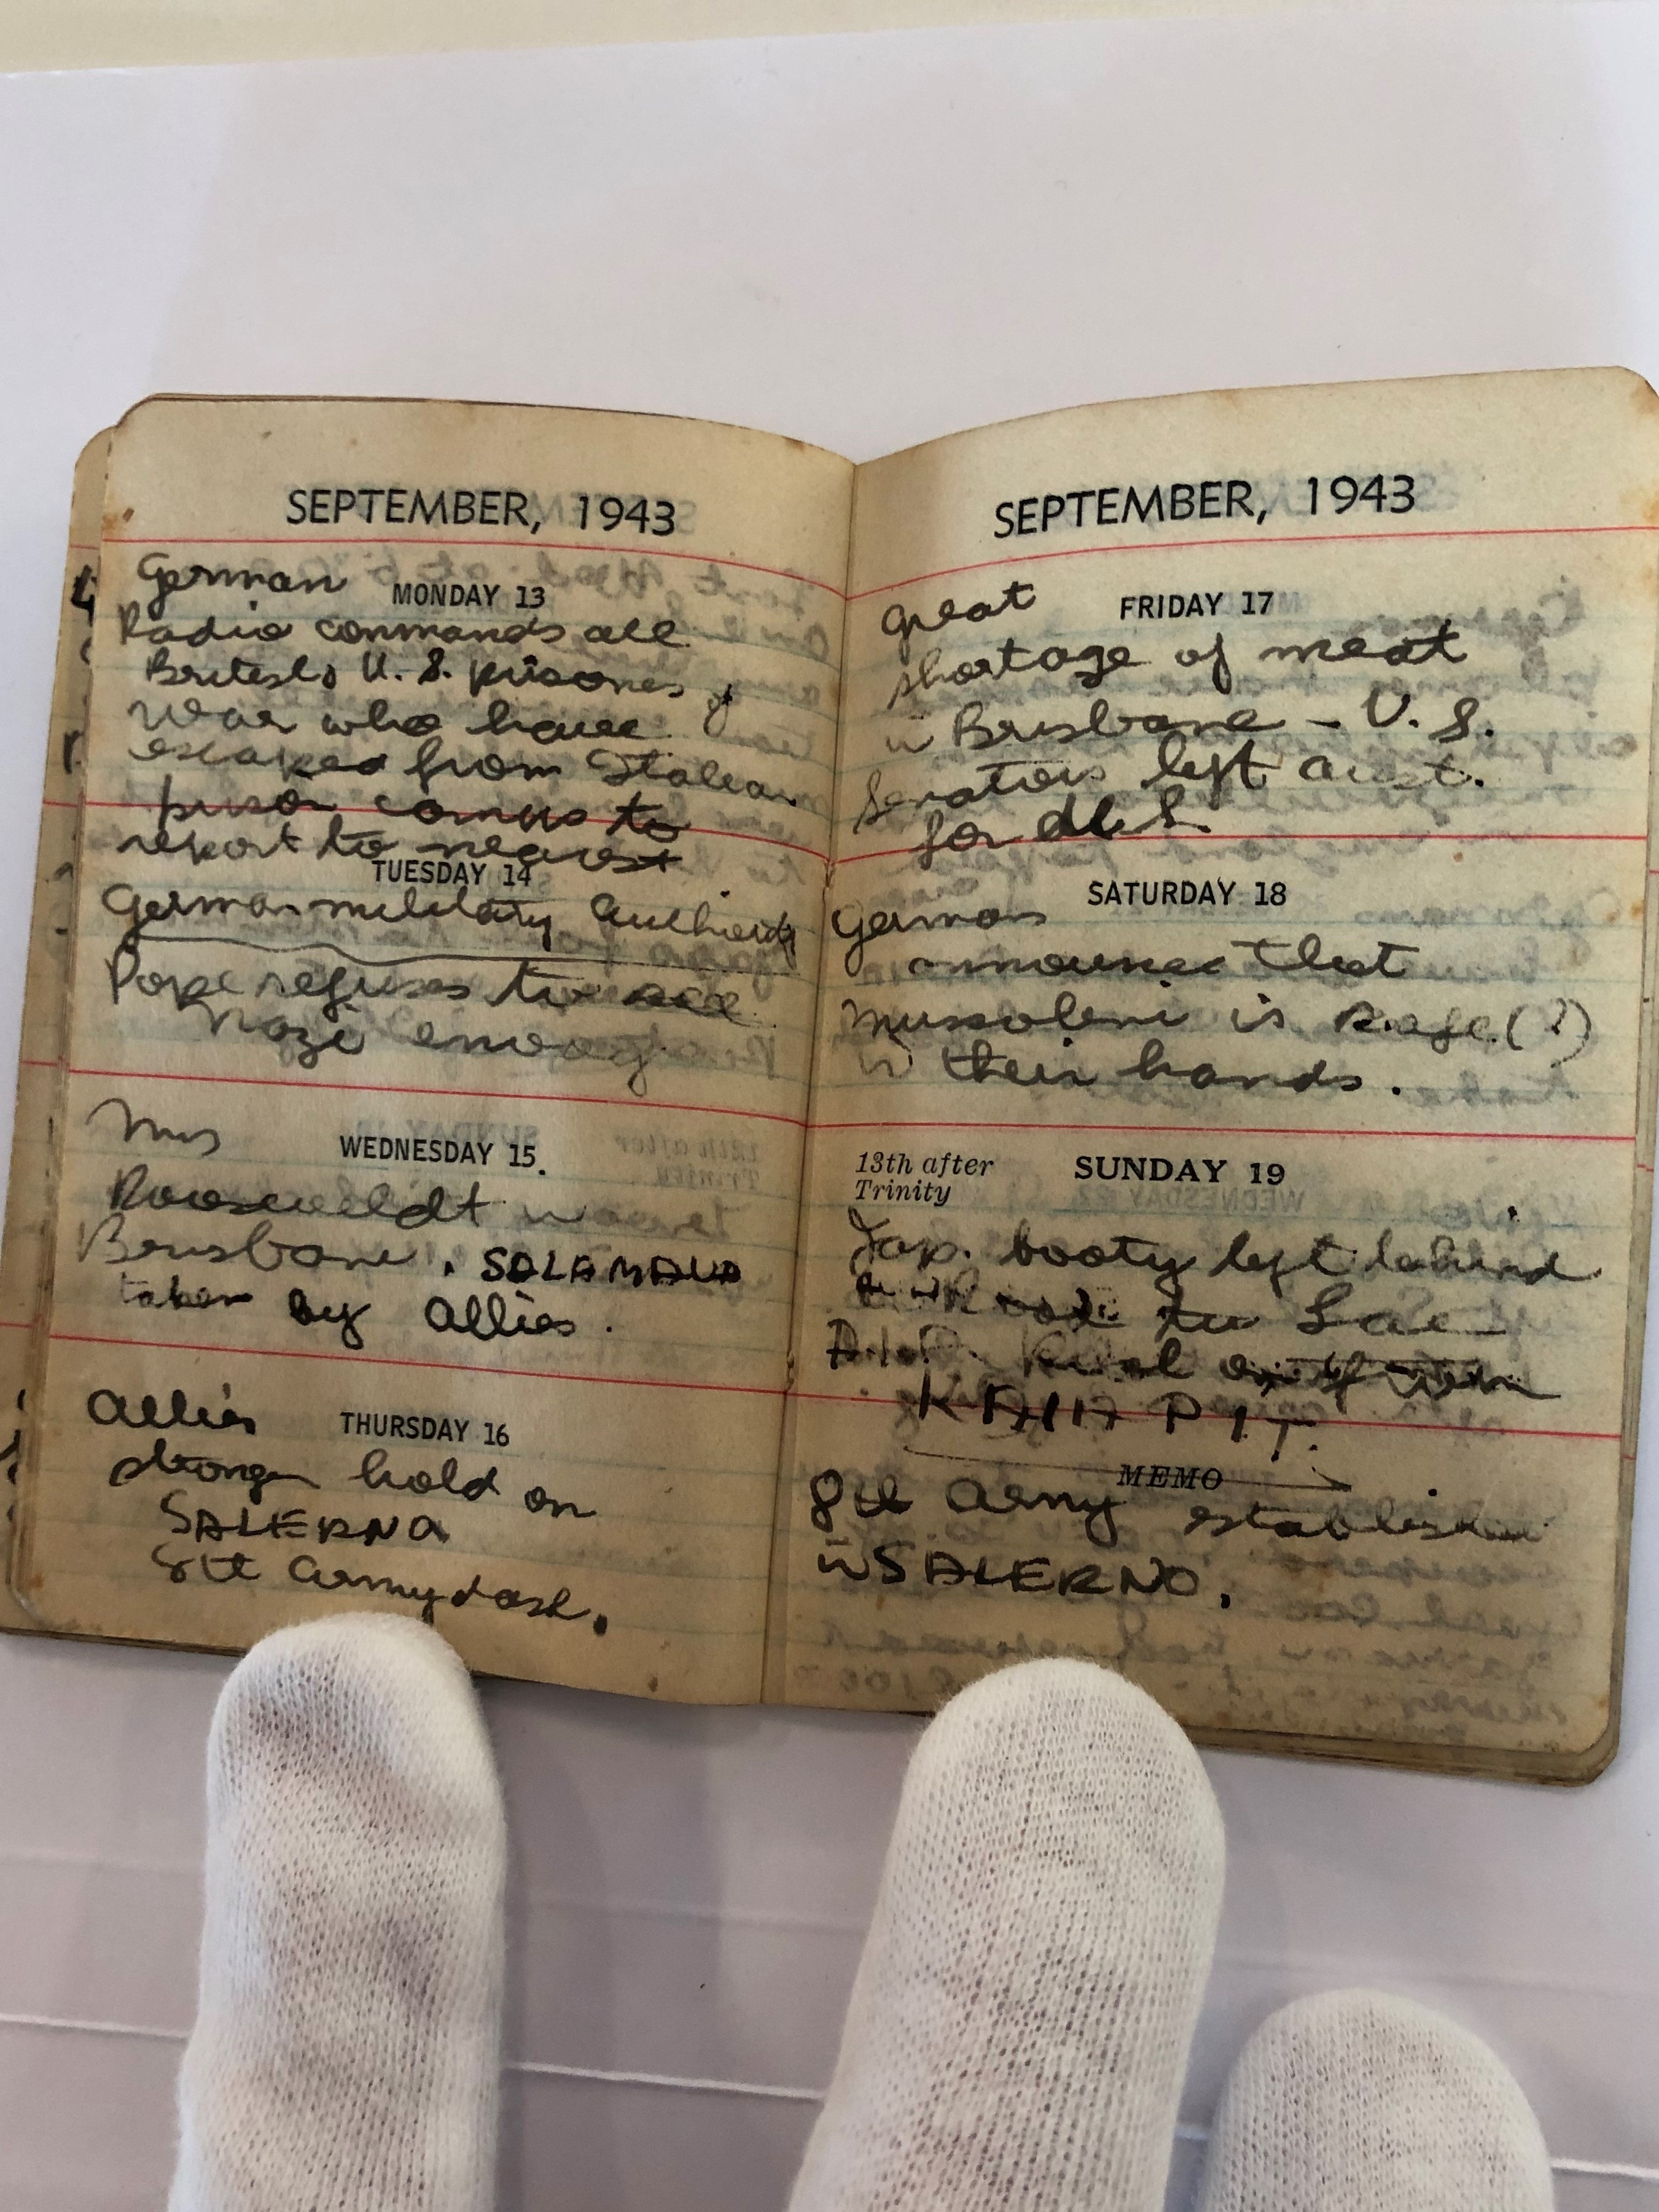 SEPTEMBER, 1943
German MONDAY 13
Radio commands all
British, U.S. prisones of
War who have
escaped from Italian
prison camps to
report to nearest
TUESDAY 14
German military
Pope refuses to see
Nazi envoy.
Mrs WEDNESDAY 15.
Rooseveldt
Brisbane. SALAMAUA
taken by Allies.
Allies THURSDAY 16
stronger hold on
SALERNA
8th Army dash.
SEPTEMBER, 1943
Great FRIDAY 17
shortage of meat
in Brisbane - U.S.
Senators left Aust.
for
SATURDAY 18
Germans
announce that
Mussolini is safe (?)
in their hands.
13th after SUNDAY 19
Trinity
Jap. booty left behind
to Lae
KAIAPIT.
MEMO
8th Army
in SALERNO.